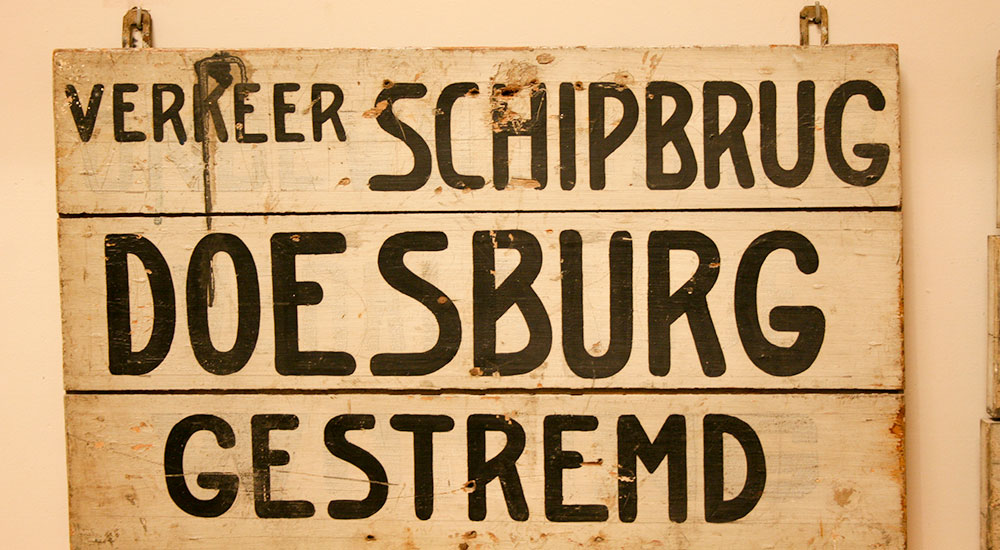 VERKEER SCHIPBRUG
DOESBURG
GESTREMD